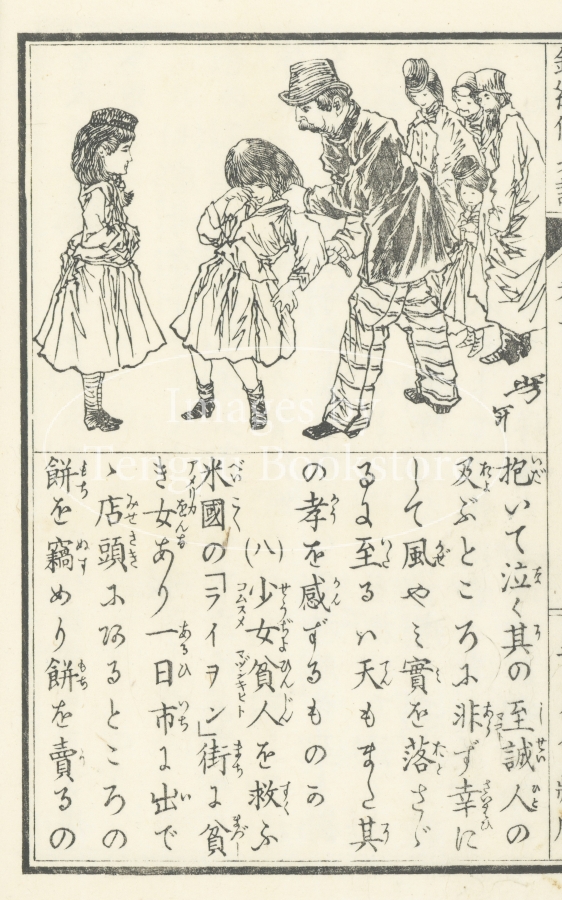 抱いて泣く其の至誠人の
及ぶところに非ず幸に
して風やミ實を落さゞ
るに至るハ天もまた其
の孝を感ずるものか
(八)少女貧人を救ふ
米國の「ライヲン」街に貧
き女あり一日市に出で
ゝ店頭にあるところの
餅を竊めり餅を賣るの
Images by
Tengen Bookstore